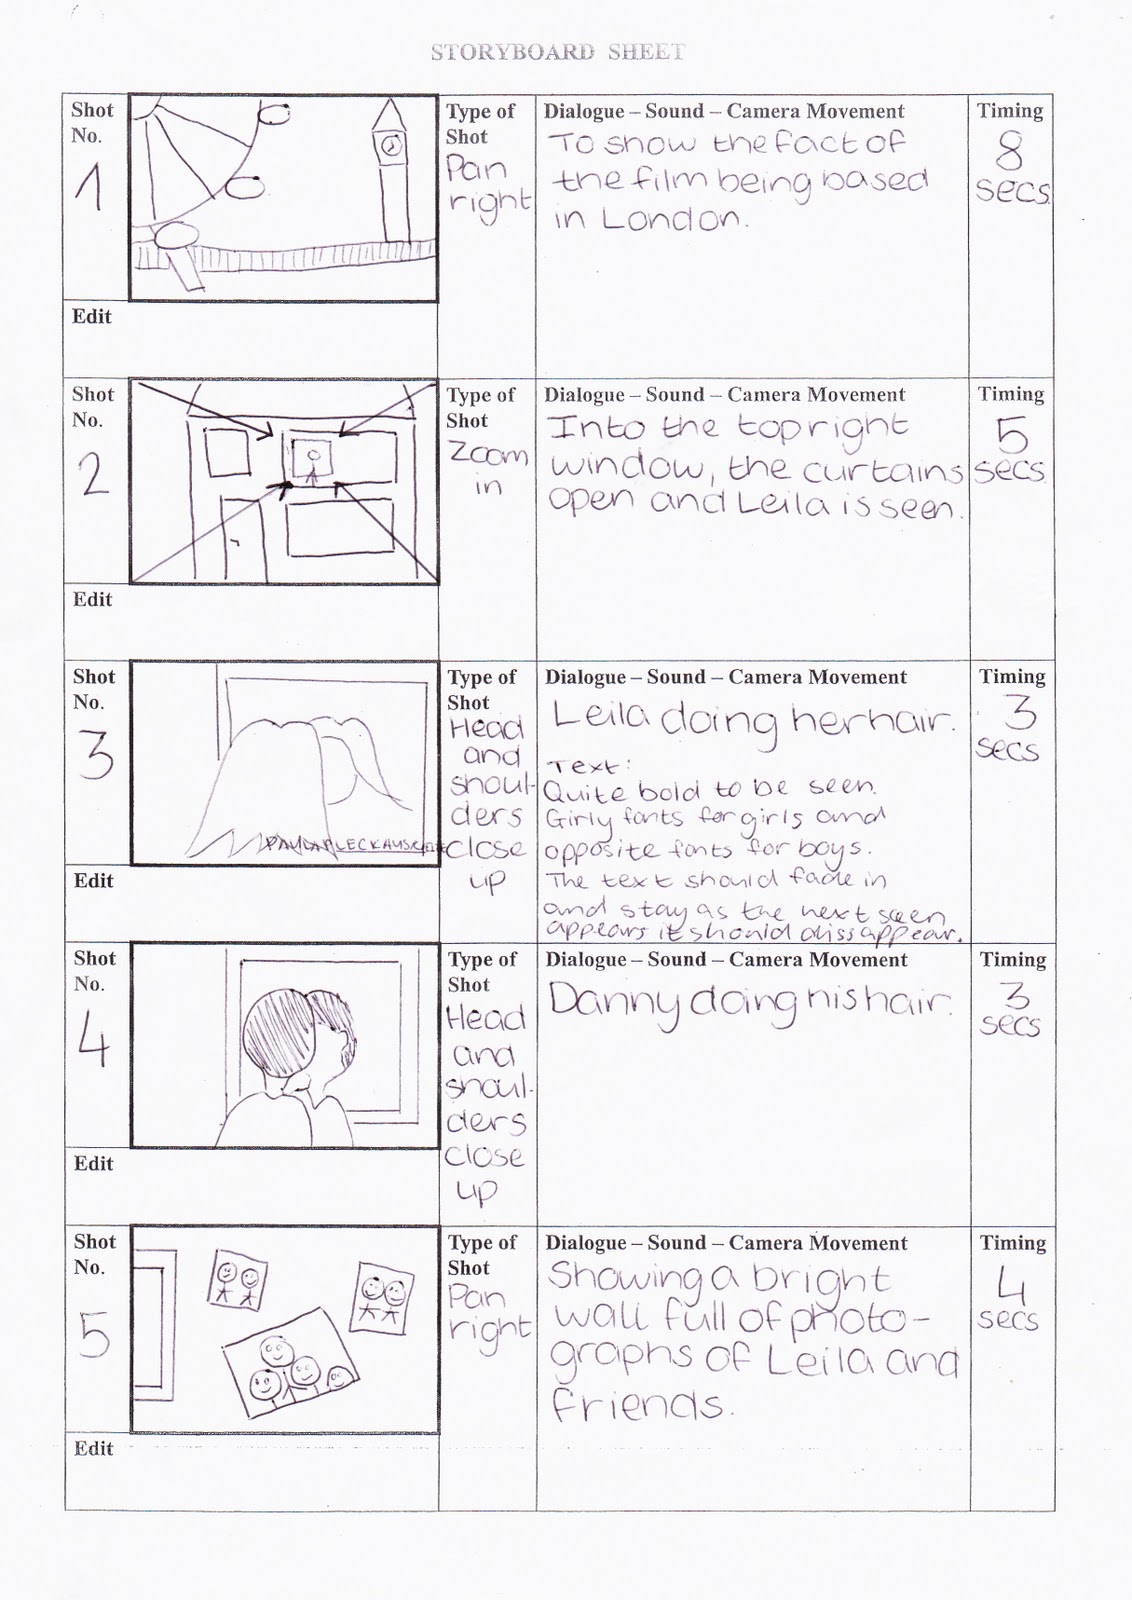 STORYBOARD SHEET
Shot
No.
1
Type of
Shot
Pan
right
Dialogue – Sound – Camera Movement
To show the fact of
the film being based
in London.
Timing
8
secs
Edit
Shot
No.
2
Type of
Shot
Zoom
in
Dialogue – Sound – Camera Movement
Into the top right
window, the curtains
open and Leila is seen.
Timing
5
secs
Edit
Shot
No.
3
Type of
Shot
Head
and
shoul-
ders
close
up
Dialogue – Sound – Camera Movement
Leila doing her hair.
Text:
Quite bold to be seen.
Girly fonts for girls and
opposite fonts for boys.
The text should fade in
and stay as the next seen
appears it should dissappear.
Timing
3
secs
Edit
Shot
No.
4
Type of
Shot
Head
and
shoul-
ders
close
up
Dialogue – Sound – Camera Movement
Danny doing his hair.
Timing
3
secs
Edit
Shot
No.
5
Type of
Shot
Pan
right
Dialogue – Sound – Camera Movement
Showing a bright
wall full of photo-
graphs of Leila and
friends.
Timing
4
secs
Edit